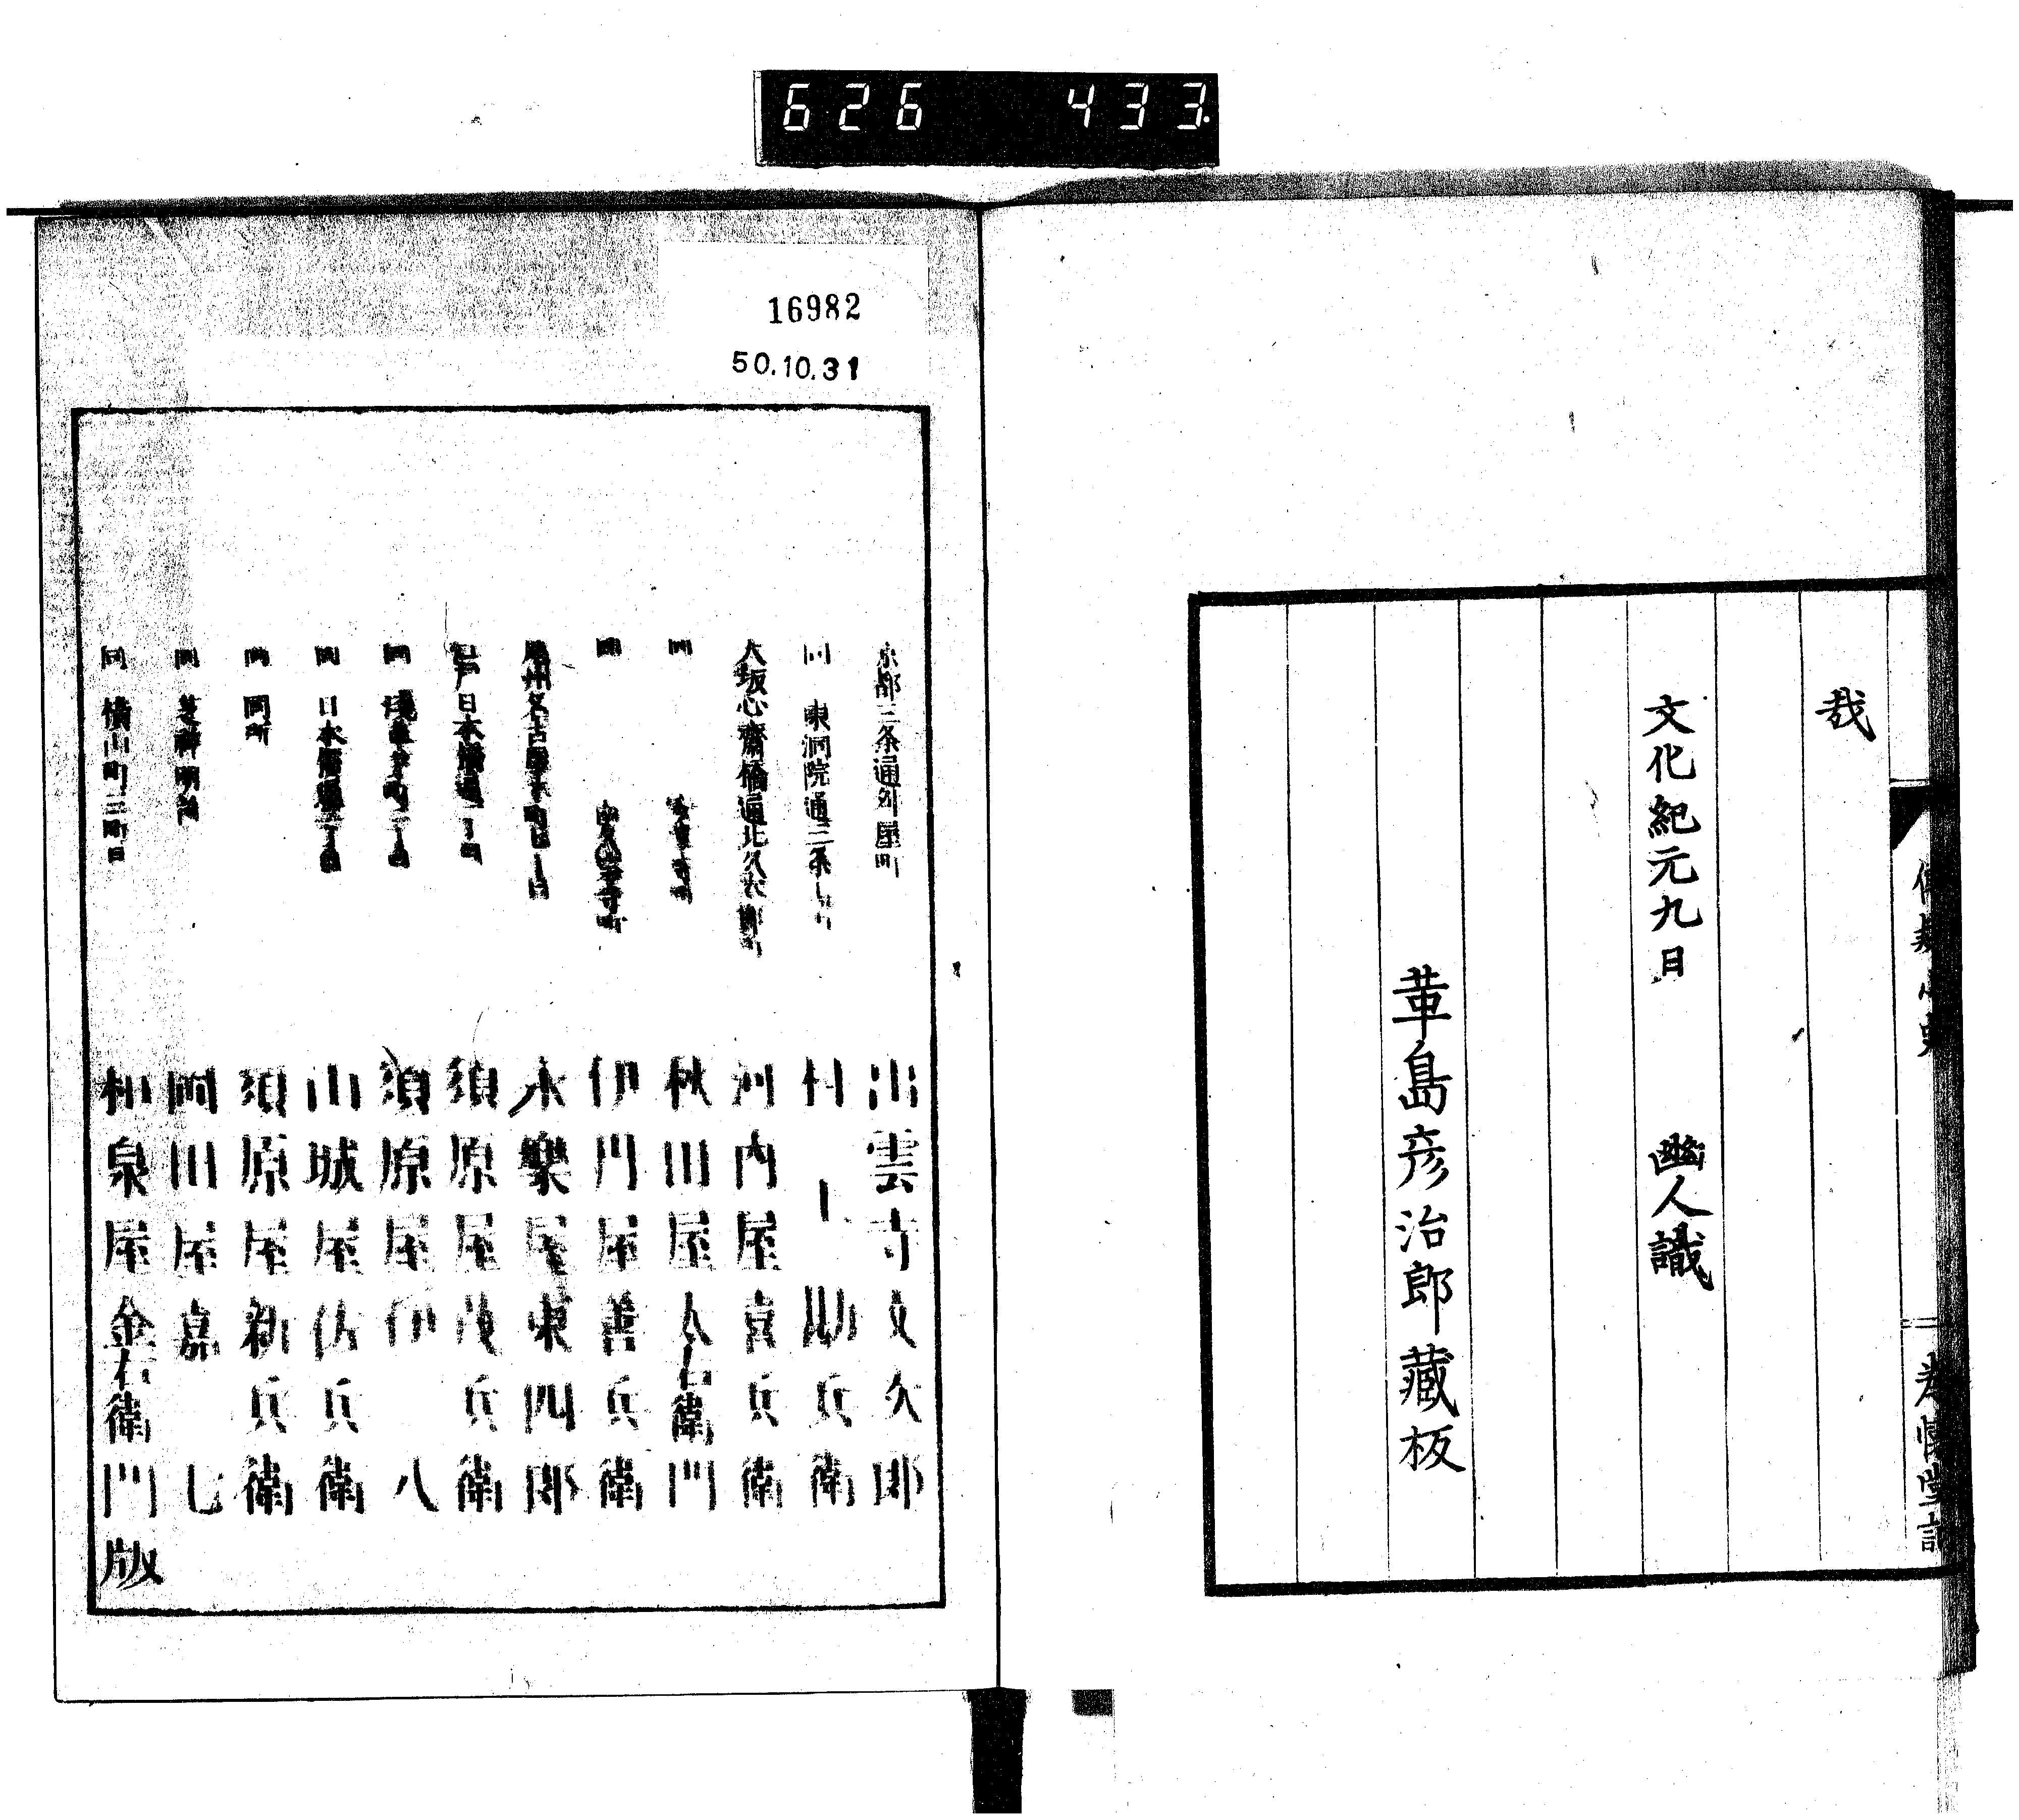 626 433
哉
文化紀元九日 幽人識
葦島彦治郎藏板
16982
50.10.31
京都三条通升屋町 出雲寺文次郎
同 東洞院通三条上ル 村上勘兵衛
大坂心齋橋通北久太郎町 河内屋喜兵衛
同 秋田屋太右衛門
同 安堂寺町 伊丹屋善兵衛
尾州名古屋本町 永樂屋東四郎
江戸日本橋通一丁目 須原屋茂兵衛
同 淺草茅町二丁目 須原屋伊八
同 日本橋通二丁目 山城屋佐兵衛
同 同所 須原屋新兵衛
同 芝神明前 岡田屋嘉七
同 横山町三町目 和泉屋金右衛門版